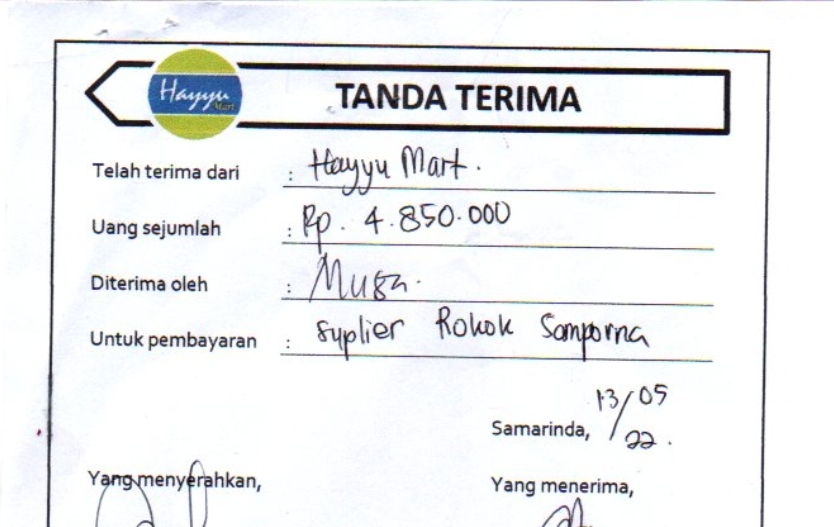 Hayyu Mart
TANDA TERIMA
Telah terima dari : Hayyu Mart.
Uang sejumlah : Rp. 4.850.000
Diterima oleh :
Untuk pembayaran : Suplier Rokok Samporna
Samarinda, 13/05
22.
Yang menyerahkan,
Yang menerima,